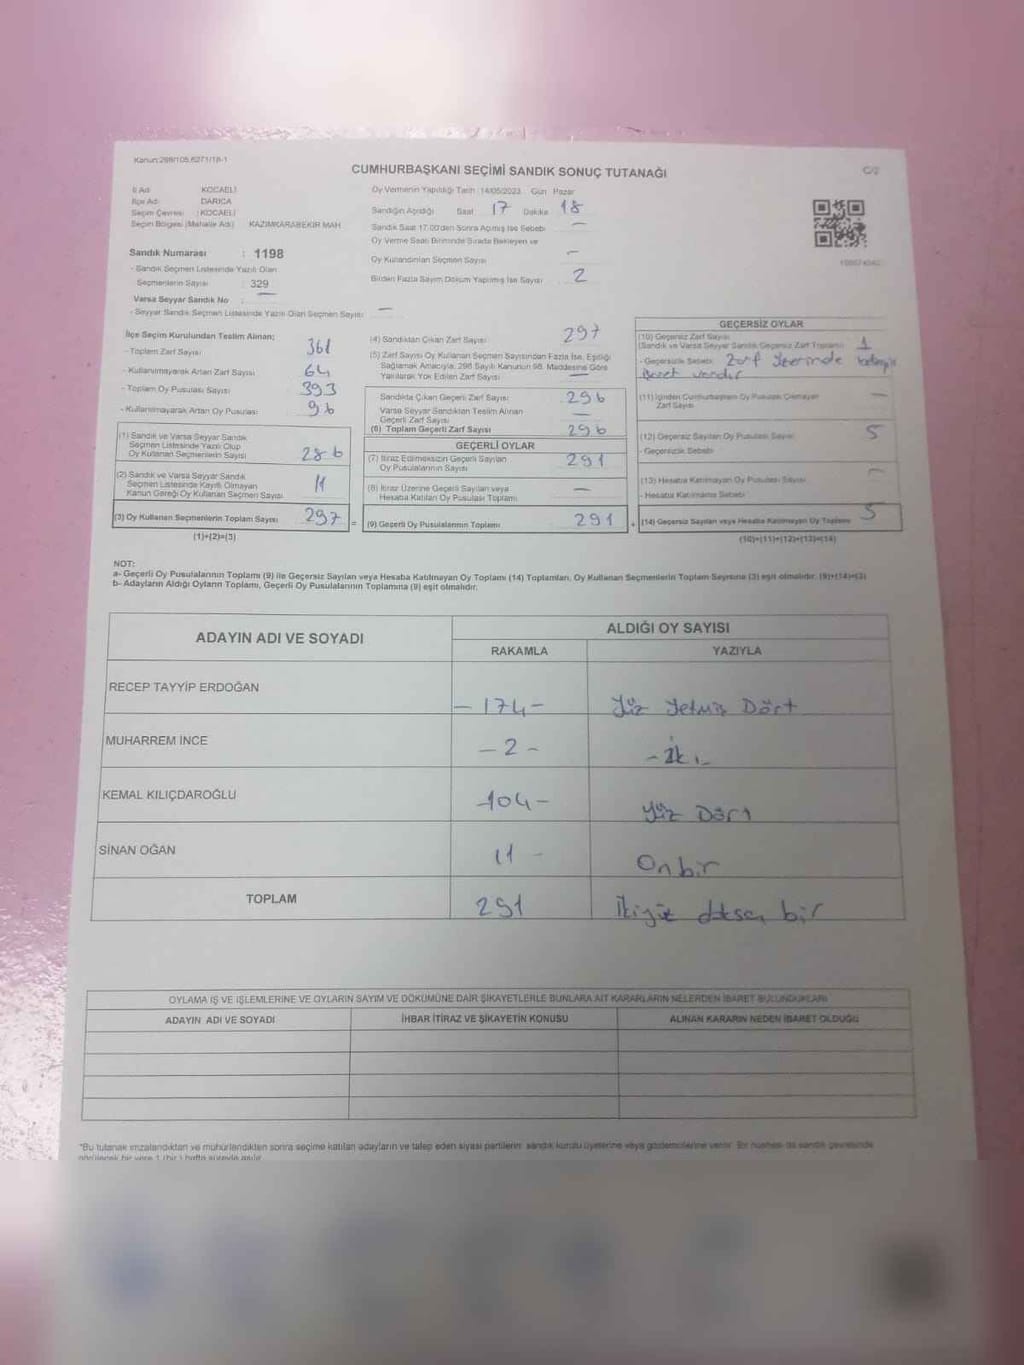 Kanun:298/105,6271/18-1
CUMHURBAŞKANI SEÇİMİ SANDIK SONUÇ TUTANAĞI
C/2
İl Adı : KOCAELİ
İlçe Adı : DARICA
Seçim Çevresi : KOCAELİ
Seçim Bölgesi (Mahalle Adı) : KAZIMKARABEKIR MAH
Sandık Numarası : 1198
- Sandık Seçmen Listesinde Yazılı Olan
Seçmenlerin Sayısı : 329
Varsa Seyyar Sandık No : —
- Seyyar Sandık Seçmen Listesinde Yazılı Olan Seçmen Sayısı: —
Oy Vermenin Yapıldığı Tarih : 14/05/2023 Gün : Pazar
Sandığın Açıldığı Saat 17 Dakika 18
Sandık Saat 17.00'den Sonra Açılmış İse Sebebi —
Oy Verme Saati Bitiminde Sırada Bekleyen ve
Oy Kullandırılan Seçmen Sayısı —
Birden Fazla Sayım Döküm Yapılmış İse Sayısı 2
İlçe Seçim Kurulundan Teslim Alınan;
- Toplam Zarf Sayısı 361
- Kullanılmayarak Artan Zarf Sayısı 64
- Toplam Oy Pusulası Sayısı 393
- Kullanılmayarak Artan Oy Pusulası 96
(1) Sandık ve Varsa Seyyar Sandık
Seçmen Listesinde Yazılı Olup
Oy Kullanan Seçmenlerin Sayısı 286
(2) Sandık ve Varsa Seyyar Sandık
Seçmen Listesinde Kayıtlı Olmayan
Kanun Gereği Oy Kullanan Seçmen Sayısı 11
(3) Oy Kullanan Seçmenlerin Toplam Sayısı 297 =
(1)+(2)=(3)
(4) Sandıktan Çıkan Zarf Sayısı 297
(5) Zarf Sayısı Oy Kullanan Seçmen Sayısından Fazla İse, Eşitliği
Sağlamak Amacıyla, 298 Sayılı Kanunun 98. Maddesine Göre
Yakılarak Yok Edilen Zarf Sayısı —
Sandıkta Çıkan Geçerli Zarf Sayısı 296
Varsa Seyyar Sandıktan Teslim Alınan
Geçerli Zarf Sayısı —
(6) Toplam Geçerli Zarf Sayısı 296
GEÇERLİ OYLAR
(7) İtiraz Edilmeksizin Geçerli Sayılan
Oy Pusulalarının Sayısı 291
(8) İtiraz Üzerine Geçerli Sayılan veya
Hesaba Katılan Oy Pusulası Toplamı —
(9) Geçerli Oy Pusulalarının Toplamı 291 +
GEÇERSİZ OYLAR
(10) Geçersiz Zarf Sayısı
(Sandık ve Varsa Seyyar Sandık Geçersiz Zarf Toplamı) 1
- Geçersizlik Sebebi: Zarf üzerinde
(11) İçinden Cumhurbaşkanı Oy Pusulası Çıkmayan
Zarf Sayısı —
(12) Geçersiz Sayılan Oy Pusulası Sayısı 5
- Geçersizlik Sebebi
(13) Hesaba Katılmayan Oy Pusulası Sayısı —
- Hesaba Katılmama Sebebi
(14) Geçersiz Sayılan veya Hesaba Katılmayan Oy Toplamı 5
(10)+(11)+(12)+(13)=(14)
NOT:
a- Geçerli Oy Pusulalarının Toplamı (9) ile Geçersiz Sayılan veya Hesaba Katılmayan Oy Toplamı (14) Toplamları, Oy Kullanan Seçmenlerin Toplam Sayısına (3) eşit olmalıdır. (9)+(14)=(3)
b- Adayların Aldığı Oyların Toplamı, Geçerli Oy Pusulalarının Toplamına (9) eşit olmalıdır.
ADAYIN ADI VE SOYADI
ALDIĞI OY SAYISI
RAKAMLA YAZIYLA
RECEP TAYYİP ERDOĞAN - 174 - Yüz Yetmiş Dört
MUHARREM İNCE - 2 - - İki -
KEMAL KILIÇDAROĞLU - 104 - Yüz Dört
SİNAN OĞAN 11 - On bir
TOPLAM 291 İkiyüz doksan bir
OYLAMA İŞ VE İŞLEMLERİNE VE OYLARIN SAYIM VE DÖKÜMÜNE DAİR ŞİKAYETLERLE BUNLARA AİT KARARLARIN NELERDEN İBARET BULUNDUKLARI
ADAYIN ADI VE SOYADI İHBAR İTİRAZ VE ŞİKAYETİN KONUSU ALINAN KARARIN NEDEN İBARET OLDUĞU
*Bu tutanak imzalandıktan ve mühürlendikten sonra seçime katılan adayların ve talep eden siyasi partilerin sandık kurulu üyelerine veya gözlemcilerine verilir. Bir nüshası da sandık çevresinde
görülecek bir yere 1 (bir) hafta süreyle asılır.